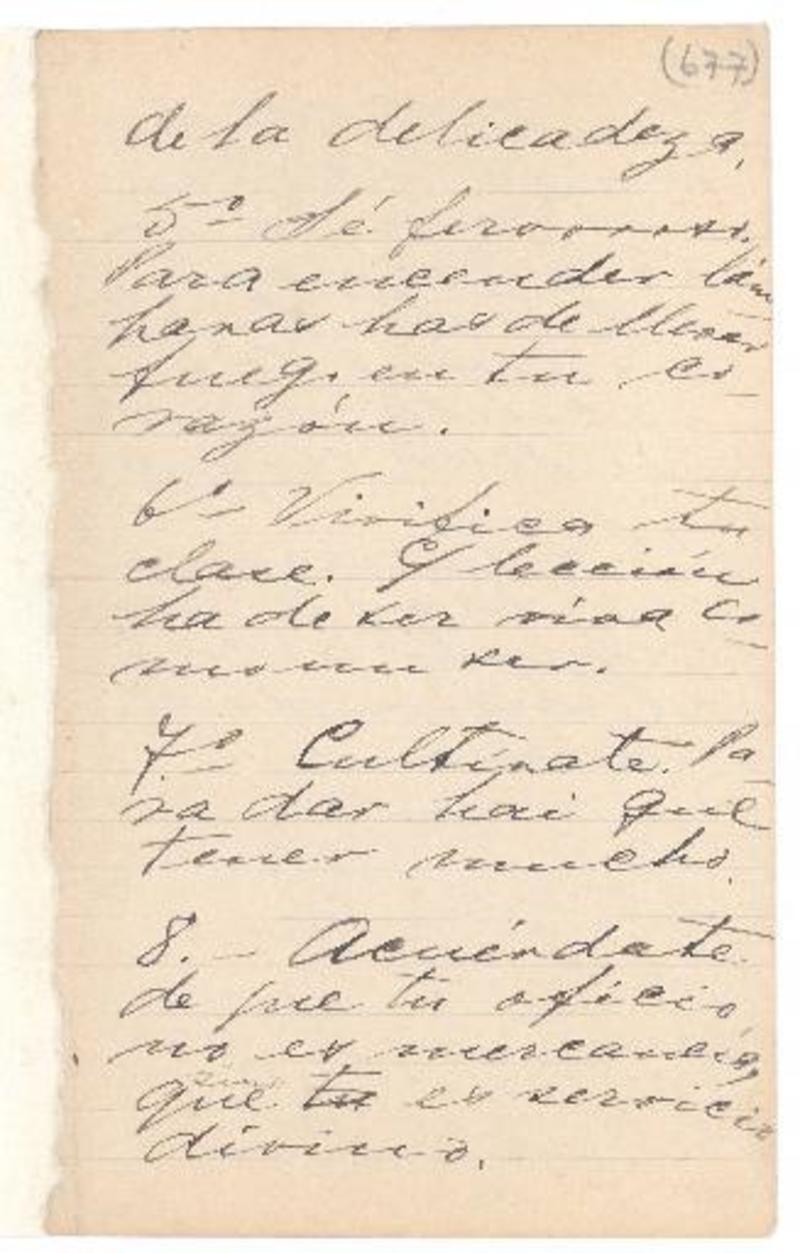 (677)
de la delicadeza.
5º Sé fervoroso.
Para encender lám
paras has de llevar
fuego en tu co-
razón.
6º- Vivifica tu
clase. Cj lección
ha de ser viva co-
mo un ser.
7º Cultívate. Pa-
ra dar hai que
tener mucho.
8.- Acuérdate
de que tu oficio
no es mercancía,
que tu es servicio
divino.